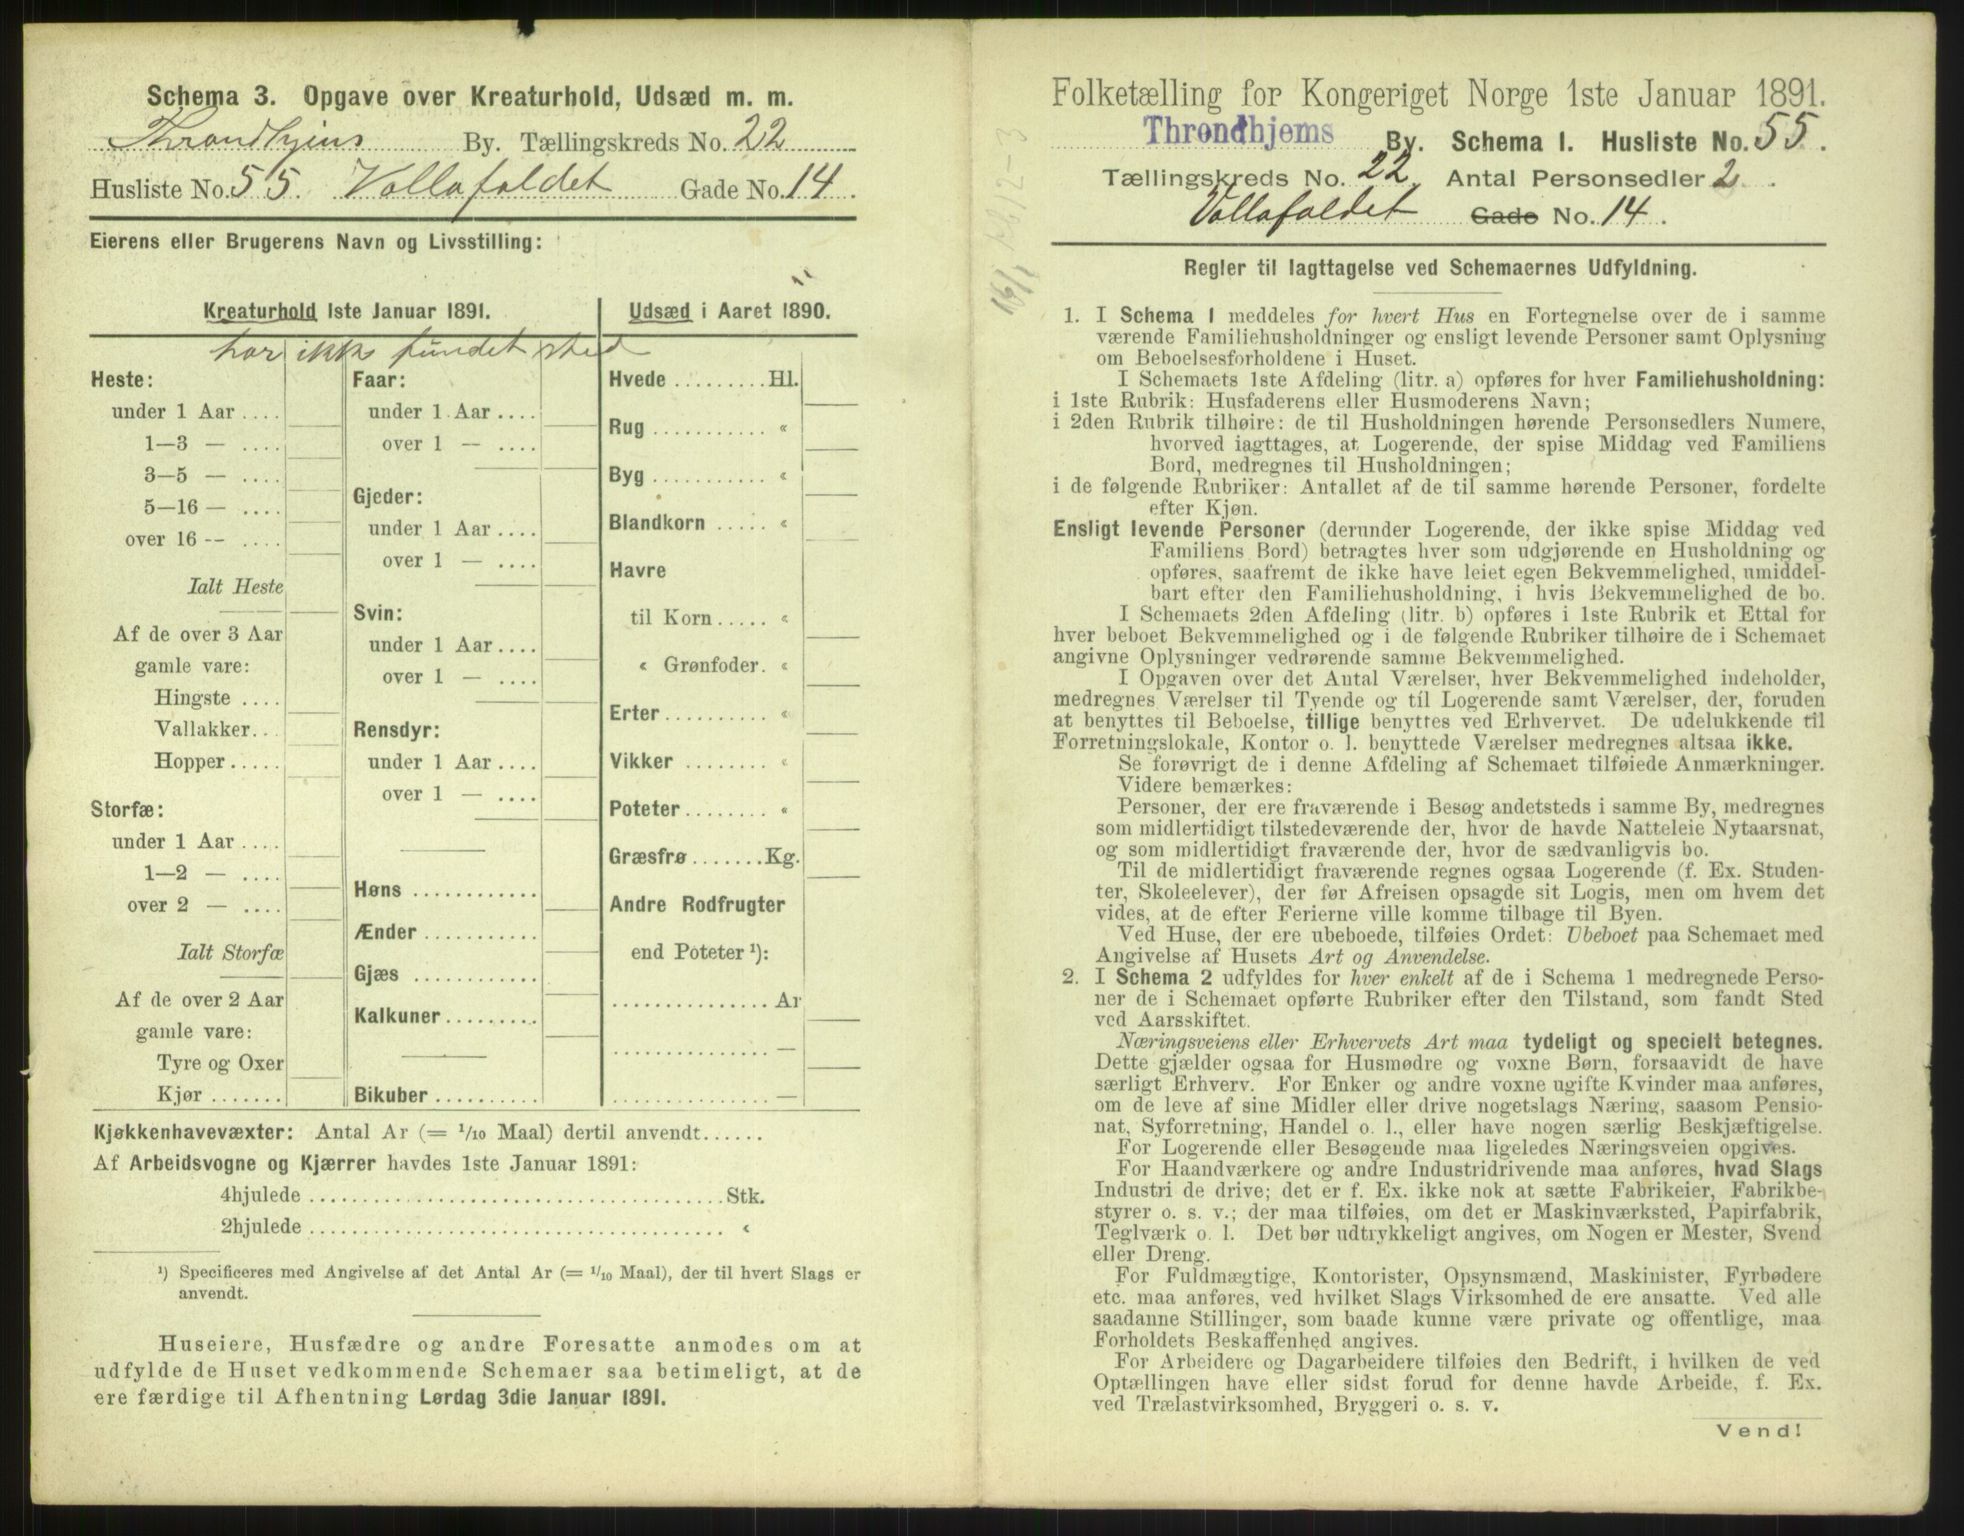 Schema 3. Opgave over Kreaturhold, Udsæd m. m.
Throndhjems By. Tællingskreds No. 22
Husliste No. 55. Vollafaldet Gade No. 14.
Eierens eller Brugerens Navn og Livsstilling:
Kreaturhold 1ste Januar 1891.
har ikke fundet sted
Heste:
under 1 Aar ....
1—3 — ....
3—5 — ....
5—16 — ....
over 16 -- ....
Ialt Heste
Af de over 3 Aar
gamle vare:
Hingste ....
Vallakker...
Hopper.....
Storfæ:
under 1 Aar ....
1—2 — ....
over 2 — ....
Ialt Storfæ
Af de over 2 Aar
gamle vare:
Tyre og Oxer
Kjør .......
Faar:
under 1 Aar ....
over 1 — ....
Gjeder:
under 1 Aar....
over 1 — ....
Svin:
under 1 Aar....
over 1 — ....
Rensdyr:
under 1 Aar....
over 1 — ....
Høns ............
Ænder ...........
Gjæs ............
Kalkuner.........
Bikuber ..........
Udsæd i Aaret 1890.
Hvede .........Hl.
Rug ........... «
Byg ........... «
Blandkorn ..... «
Havre
til Korn ..... «
« Grønfoder. «
Erter.......... «
Vikker ........ «
Poteter........ «
Græsfrø.......Kg.
Andre Rodfrugter
end Poteter ¹):
............... Ar
............... —
............... —
Kjøkkenhavevæxter: Antal Ar (= 1/10 Maal) dertil anvendt......
Af Arbeidsvogne og Kjærrer havdes 1ste Januar 1891:
4hjulede ........................................Stk.
2hjulede ........................................ «
¹) Specificeres med Angivelse af det Antal Ar (= 1/10 Maal), der til hvert Slags er
anvendt.
Huseiere, Husfædre og andre Foresatte anmodes om at
udfylde de Huset vedkommende Schemaer saa betimeligt, at de
ere færdige til Afhentning Lørdag 3die Januar 1891.
Folketælling for Kongeriget Norge 1ste Januar 1891.
Throndhjems By. Schema I. Husliste No. 55.
Tællingskreds No. 22. Antal Personsedler 2.
Vollafaldet Gade No. 14.
Regler til Iagttagelse ved Schemaernes Udfyldning.
1. I Schema 1 meddeles for hvert Hus en Fortegnelse over de i samme
værende Familiehusholdninger og ensligt levende Personer samt Oplysning
om Beboelsesforholdene i Huset.
I Schemaets 1ste Afdeling (litr. a) opføres for hver Familiehusholdning:
i 1ste Rubrik: Husfaderens eller Husmoderens Navn;
i 2den Rubrik tilhøire: de til Husholdningen hørende Personsedlers Numere,
hvorved iagttages, at Logerende, der spise Middag ved Familiens
Bord, medregnes til Husholdningen;
i de følgende Rubriker: Antallet af de til samme hørende Personer, fordelte
efter Kjøn.
Ensligt levende Personer (derunder Logerende, der ikke spise Middag ved
Familiens Bord) betragtes hver som udgjørende en Husholdning og
opføres, saafremt de ikke have leiet egen Bekvemmelighed, umiddel-
bart efter den Familiehusholdning, i hvis Bekvemmelighed de bo.
I Schemaets 2den Afdeling (litr. b) opføres i 1ste Rubrik et Ettal for
hver beboet Bekvemmelighed og i de følgende Rubriker tilhøire de i Schemaet
angivne Oplysninger vedrørende samme Bekvemmelighed.
I Opgaven over det Antal Værelser, hver Bekvemmelighed indeholder,
medregnes Værelser til Tyende og til Logerende samt Værelser, der, foruden
at benyttes til Beboelse, tillige benyttes ved Erhvervet. De udelukkende til
Forretningslokale, Kontor o. l. benyttede Værelser medregnes altsaa ikke.
Se forøvrigt de i denne Afdeling af Schemaet tilføiede Anmærkninger.
Videre bemærkes:
Personer, der ere fraværende i Besøg andetsteds i samme By, medregnes
som midlertidigt tilstedeværende der, hvor de havde Natteleie Nytaarsnat,
og som midlertidigt fraværende der, hvor de sædvanligvis bo.
Til de midlertidigt fraværende regnes ogsaa Logerende (f. Ex. Studen-
ter, Skoleelever), der før Afreisen opsagde sit Logis, men om hvem det
vides, at de efter Ferierne ville komme tilbage til Byen.
Ved Huse, der ere ubeboede, tilføies Ordet: Ubeboet paa Schemaet med
Angivelse af Husets Art og Anvendelse.
2. I Schema 2 udfyldes for hver enkelt af de i Schema 1 medregnede Perso-
ner de i Schemaet opførte Rubriker efter den Tilstand, som fandt Sted
ved Aarsskiftet.
Næringsveiens eller Erhvervets Art maa tydeligt og specielt betegnes.
Dette gjælder ogsaa for Husmødre og voxne Børn, forsaavidt de have
særligt Erhverv. For Enker og andre voxne ugifte Kvinder maa anføres,
om de leve af sine Midler eller drive nogetslags Næring, saasom Pensio-
nat, Syforretning, Handel o. l., eller have nogen særlig Beskjæftigelse.
For Logerende eller Besøgende maa ligeledes Næringsveien opgives.
For Haandværkere og andre Industridrivende maa anføres, hvad Slags
Industri de drive; det er f. Ex. ikke nok at sætte Fabrikeier, Fabrikbe-
styrer o. s. v.; der maa tilføies, om det er Maskinværksted, Papirfabrik,
Teglværk o. l. Det bør udtrykkeligt angives, om Nogen er Mester, Svend
eller Dreng.
For Fuldmægtige, Kontorister, Opsynsmænd, Maskinister, Fyrbødere
etc. maa anføres, ved hvilket Slags Virksomhed de ere ansatte. Ved alle
saadanne Stillinger, som baade kunne være private og offentlige, maa
Forholdets Beskaffenhed angives.
For Arbeidere og Dagarbeidere tilføies den Bedrift, i hvilken de ved
Optællingen have eller sidst forud for denne havde Arbeide, f. Ex.
ved Trælastvirksomhed, Bryggeri o. s. v.
Vend!